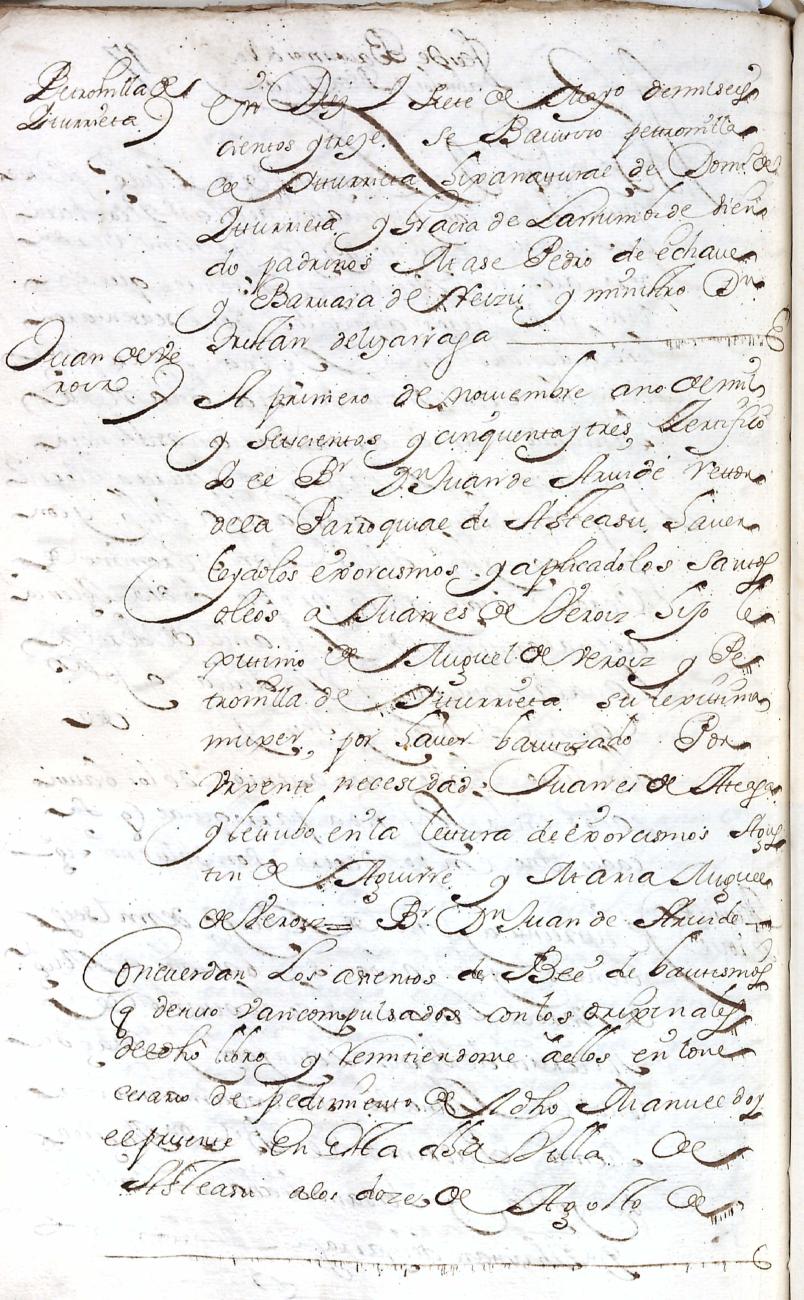 Petronilla de
Yturrieta
En Diez y siete de Mayo de mil seys
cientos y treze se Bautizo petronilla
de Yturrieta hixa natural de Dom.º de
Yturrieta y Gracia de Larrumbide sien
do padrinos Mase Pedro de echaue
y Baruara de Areizu y ministro Dn
Tristan de lizarraga
Juan de Ve
roiz
A primero de nouiembre año de mil
y seiscientos y cinquenta y tres Zertifico
Yo el Br Dn Juan de Aruide Rettor
de la Parroquial de Asteasu hauer
leydo los exorcismos y aplicado los santos
oleos a Juanes de Veroiz hijo le
xitimo de Miguel de Veroiz y Pe
tronilla de Yturrieta su lexitima
muxer, por hauer bautizado Por
Vrxente necesidad Juanes de Ateaga
y le tubo en la letura de exorcismos Agus
tin de Aguirre y Maria Miguel
de Veroiz = Br Dn Juan de Aruide
Concuerdan los asientos de Bee de bautismos
q dentro van compulsados con los orixinales
del dho libro y remitiendome a ellos en lo ne
cesario de pedimiento de dho Manuel doy
el presente En Esta dha Villa de
Asteasu a los doze de Agosto de